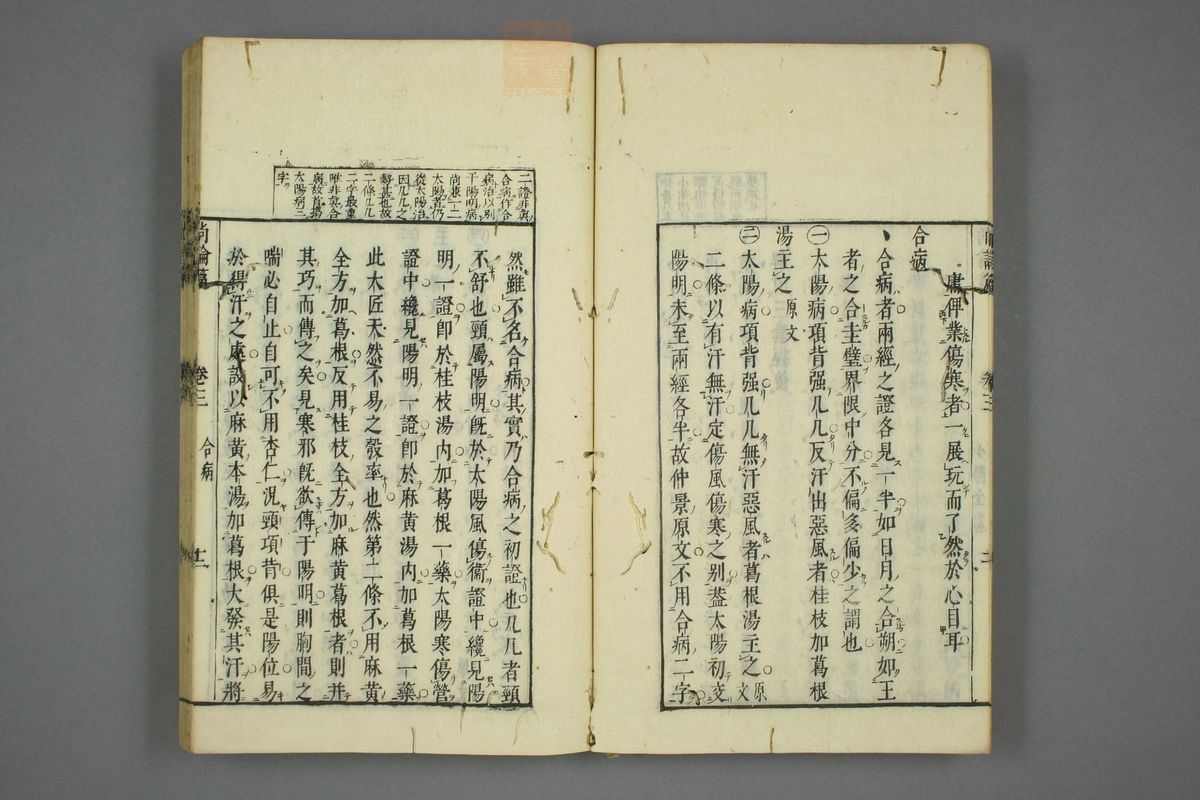 庸俾業傷寒者一展玩而了然於心目耳
合病
合病者兩經之證各見一半如日月之合朔如王
者之合圭璧界限中分不偏多偏少之謂也
㊀太陽病項背强几几反汗出惡風者桂枝加葛根
湯主之 原文
㊁太陽病項背强几几無汗惡風者葛根湯主之 原文
二條以有汗無汗定傷風傷寒之别葢太陽初交
陽明未至兩經各半故仲景原文不用合病二字
二證非眞
合病作合
病治以别
于陽明病
尚兼一二
太陽者仍
從太陽治
因几几之
勢甚也故
二條几几
二字最重
雖非眞合
病故首揭
太陽病三
字
然雖不名合病其實乃合病之初證也几几者頸
不舒也頸屬陽明旣於太陽風傷衞證中纔見陽
明一證卽於桂枝湯内加葛根一藥太陽寒傷營
證中纔見陽明一證卽於麻黄湯内加葛根一藥
此大匠天然不易之彀率也然第二條不用麻黄
全方加葛根反用桂枝全方加麻黄葛根者則并
其巧而傳之矣見寒邪旣欲傳于陽明則胸間之
喘必自止自可不用杏仁況頸項背俱是陽位易
於得汗之處設以麻黄本湯加葛根大發其汗將
尚論篇
卷三
合病
十二
卷三
zysj.com.cn